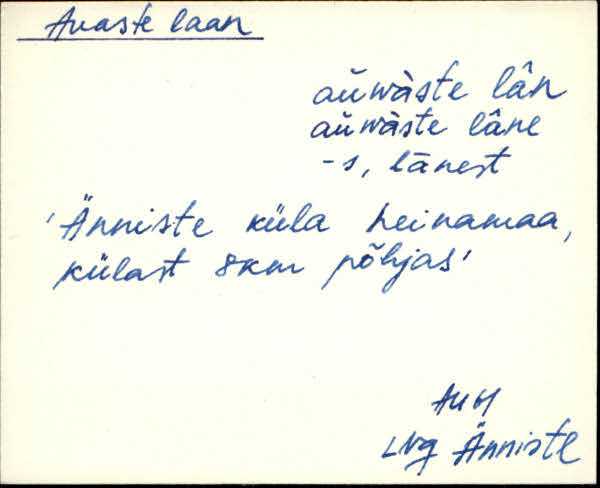 Avaste laan
aŭwàste lân
aŭwàste lâne
-s, lānest
'Änniste küla heinamaa,
külast 8km põhjas'
Änniste